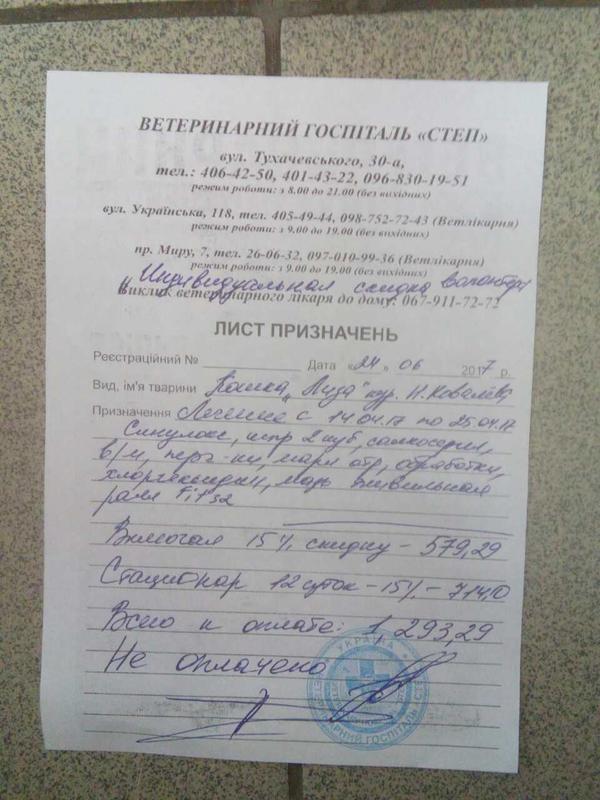 ВЕТЕРИНАРНИЙ ГОСПІТАЛЬ «СТЕП»
вул. Тухачевського, 30-а,
тел.: 406-42-50, 401-43-22, 096-830-19-51
режим роботи: з 8.00 до 21.00 (без вихідних)
вул. Українська, 118, тел. 405-49-44, 098-752-72-43 (Ветлікарня)
режим роботи: з 9.00 до 19.00 (без вихідних)
пр. Миру, 7, тел. 26-06-32, 097-010-99-36 (Ветлікарня)
режим роботи: з 9.00 до 19.00 (без вихідних)
"Индивидуальная скидка волонтер
Виклик ветеринарного лікаря до дому: 067-911-72-72
ЛИСТ ПРИЗНАЧЕНЬ
Реєстраційний № Дата «24» 06 2017 р.
Вид, ім'я тварини Кошка "Луза" кур. Н. Ковалёва
Призначення Лечение с 14.04.17 по 25.04.17
Синулокс, шпр 2 куб,
в/м, перч-ки, марл отр, обработки,
хлоргексидин, мазь
раны
Включая 15% скидку - 579,29
Стационар 12 суток - 15% - 714,0
Всего к оплате: 1,293,29
Не оплачено
УКРАЇНА
ВЕТЕРИНАРНИЙ ГОСПІТАЛЬ СТЕП